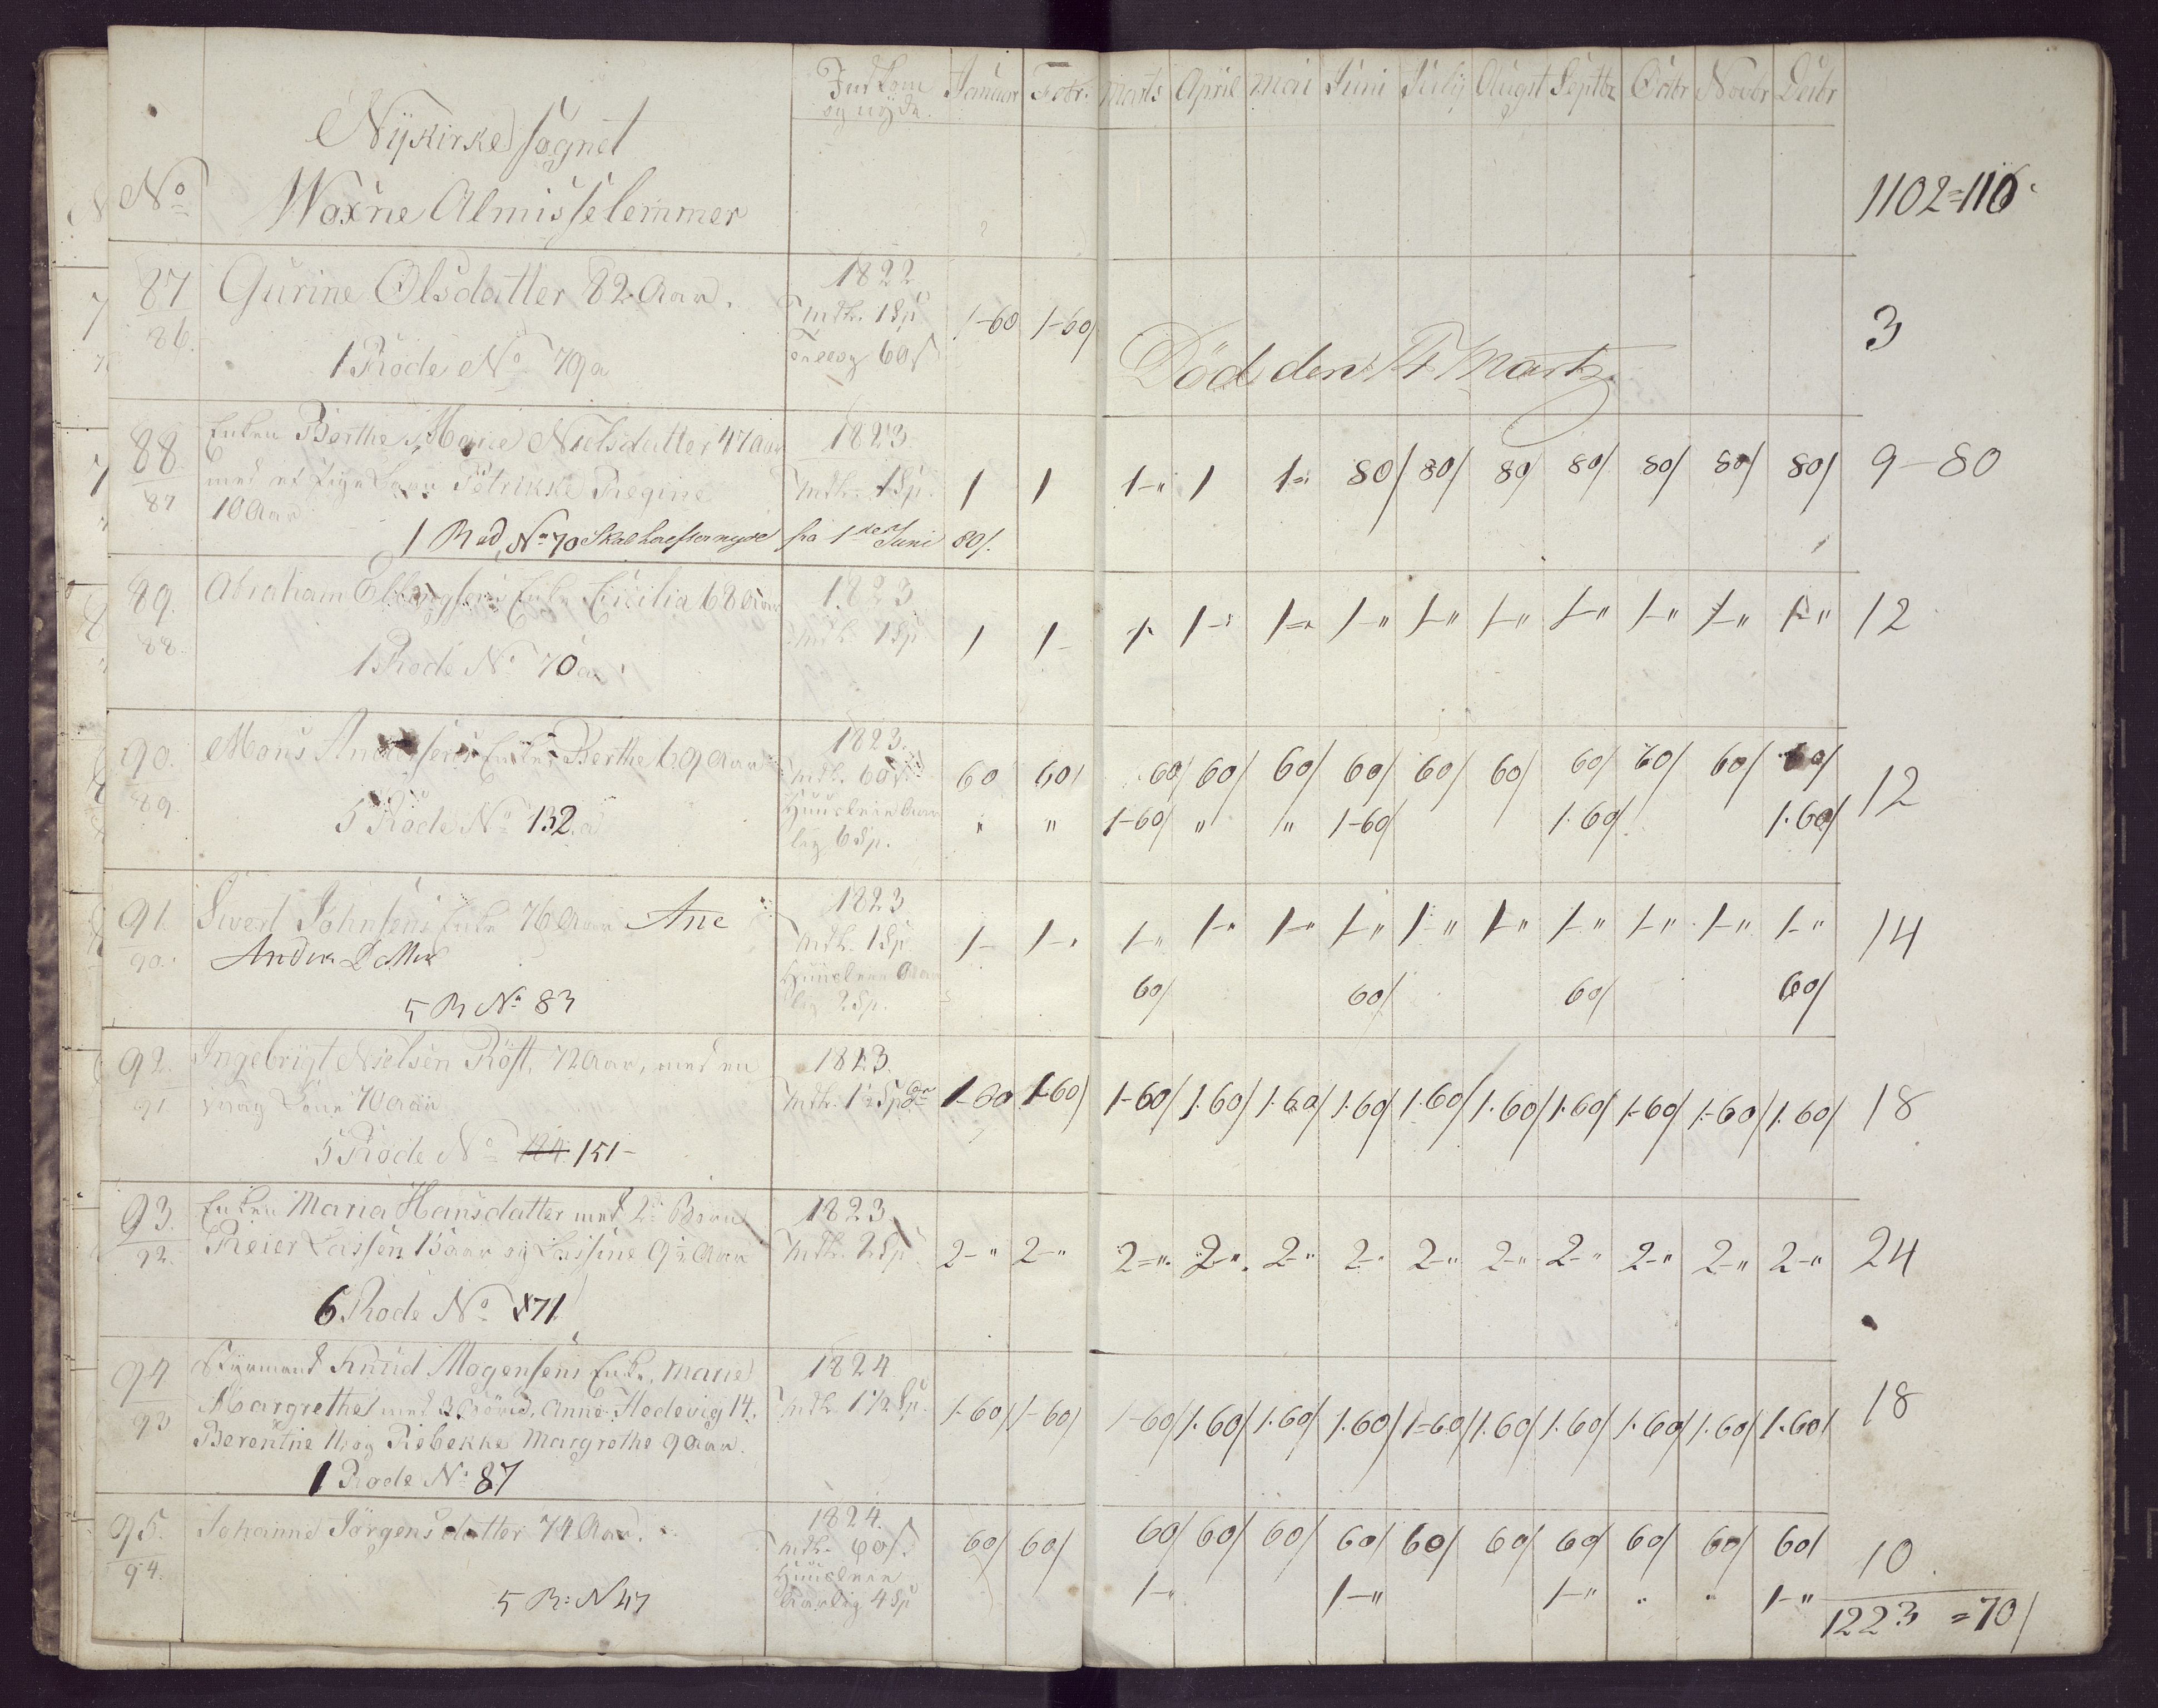 Nykirke sognet
No
Woxne Almisselemmer
Indkom og nyder
Januar Febr. Marts April Mai Juni July Augst Septbr Octbr Novbr Decbr
1102=116
87
86.
Gurine Olsdatter 82 Aar.
1 Rode No 79a
1822
Mdl. 1 Sp
60 s
1-60 1-60/
Död den Martz
3
88
87
Enken Berthe Marie Nielsdatter 47 Aar
med et Pige Barn Petrikke Regine
10 Aar
1 Rod, No 70 Skal herefter nyde fra 1ste Juni 80/.
1823.
Mdl. 1 Sp.
1 1 1-" 1 1-" 80/ 80/ 80/ 80/ 80/ 80/ 80/
9-80
89.
88.
Abraham Enke Cicilia 68 Aar
1 Rode No 70a
1823
Mdl. 1 Sp
1 1- 1-" 1-" 1-" 1-" 1-" 1-" 1-" 1-" 1-" 1-"
12
90.
89.
Mons Andersens Enke Berthe 69 Aar
5 Rode No 132.a
1823.
Mdl. 60 s.
Huusleie Aar
lig 6 Sp.
60 60/ 60/ 60/ 60/ 60/ 60/ 60/ 60/ 60/ 60/ 60/
" " 1-60/ " " 1-60/ 1.60/ 1.60/
12
91.
90.
Sivert Johnsens Enke 76 Aar Ane
Anders Datter
5 R No 83
1823
Mdl. 1 Sp.
Huusleie Aar
lig 2 Sp.
1- 1-" 1-" 1-" 1-" 1-" 1-" 1-" 1-" 1-" 1-" 1-"
60/ 60/ 60/ 60/
14
92.
91
Ingebrigt Nielsen Röst, 72 Aar, med en
svag Kone 70 Aar
5 Rode No 124. 151-
1823.
Mdl. 1½ Sp
1-60 1-60/ 1-60/ 1.60/ 1.60/ 1.60/ 1.60/ 1.60/ 1.60/ 1-60/ 1-60/ 1.60/
18
93.
92.
Enken Maria Hansdatter med 2 Börn
Reier Lassen 13 Aar og Lassine 9½ Aar
6 Rode No 171
1823
Mdl. 2 Sp.
2-" 2-" 2-" 2-" 2-" 2-" 2-" 2-" 2-" 2-" 2-" 2-"
24
94
93
Styrmand Knud Mogensens Enke, Marie
Margrethe med 3 Börn, Anne Hedevig 14.
Berentine 11, og Rebekke Margrethe 9 Aar.
1 Rode No 87
1824
Mdl. 1½ Sp.
1-60/ 1-60/ 1-60/ 1.60/ 1.60/ 1.60/ 1-60/ 1.60/ 1.60/ 1.60/ 1.60/ 1.60/
18
95.
94.
Johanne Jörgensdatter 74 Aar.
5 R: N 47
1824.
Mdl. 60 s.
Huusleie
Aarlig 4 Sp
60/ 60/ 60/ 60/ 60/ 60/ 60/ 60/ 60/ 60/ 60/ 60/
1-" 1-" 1-" " " 1-"
10
1223 = 70/